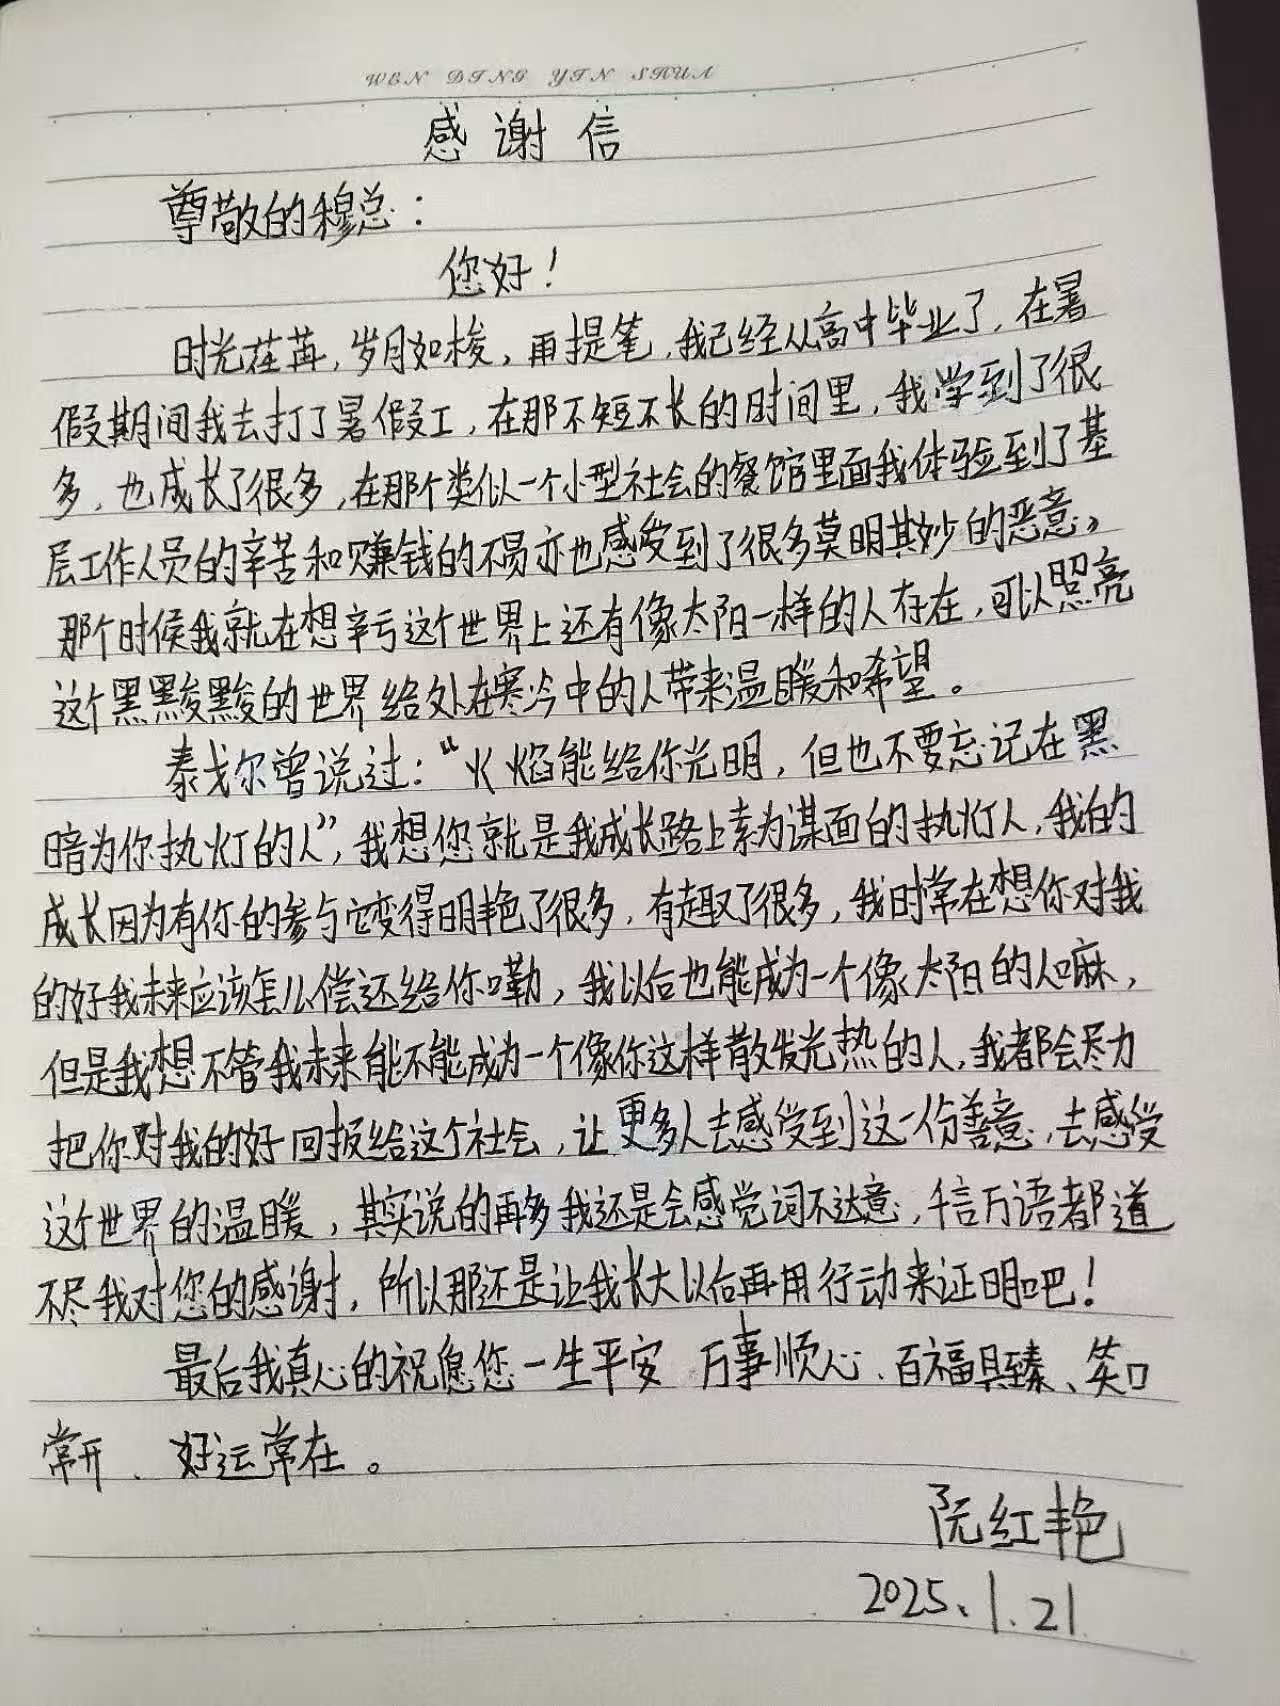 WEN DING YIN SHUA
感谢信
尊敬的穆总：
您好！
时光荏苒，岁月如梭，再提笔，我已经从高中毕业了，在暑
假期间我去打了暑假工，在那不短不长的时间里，我学到了很
多，也成长了很多，在那个类似一个小型社会的餐馆里面我体验到了基
层工作人员的辛苦和赚钱的不易亦也感受到了很多莫明其妙的恶意，
那个时候我就在想辛亏这个世界上还有像太阳一样的人存在，可以照亮
这个黑黢黢的世界给处在寒冷中的人带来温暖和希望。
泰戈尔曾说过：“火焰能给你光明，但也不要忘记在黑
暗为你执灯的人”，我想您就是我成长路上素为谋面的执灯人，我的
成长因为有你的参与它变得明艳了很多，有趣了很多，我时常在想你对我
的好我未来应该怎么偿还给你嘞，我以后也能成为一个像太阳的人嘛，
但是我想不管我未来能不能成为一个像你这样散发光热的人，我都会尽力
把你对我的好回报给这个社会，让更多人去感受到这一份善意，去感受
这个世界的温暖，其实说的再多我还是会感觉词不达意，千言万语都道
不尽我对您的感谢，所以那还是让我长大以后再用行动来证明吧！
最后我真心的祝愿您一生平安 万事顺心、百福具臻、笑口
常开、好运常在。
阮红艳
2025、1.21